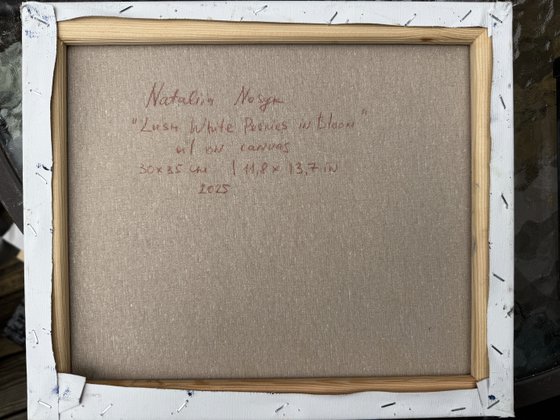 Nataliia Nosyk
"Lush White Peonies in Bloom"
oil on canvas
30x35 cm | 11,8 x 13,7 in
2025